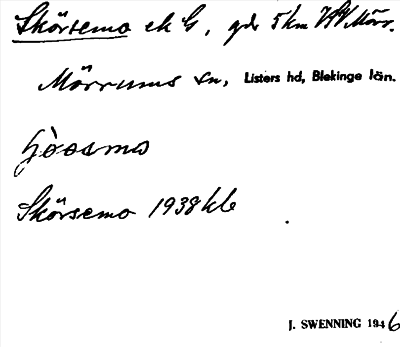 Skörsemo ek G, gde 5 km VSV Mörr.
Mörrums sn, Listers hd, Blekinge län.
Skörsemo 1938 kb
J. SWENNING 1946